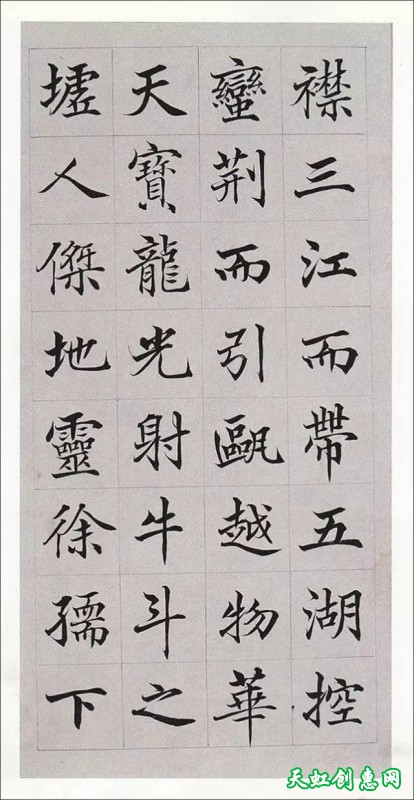 襟三江而帶五湖控
蠻荆而引甌越物華
天寶龍光射牛斗之
墟人傑地靈徐孺下
天虹创惠网